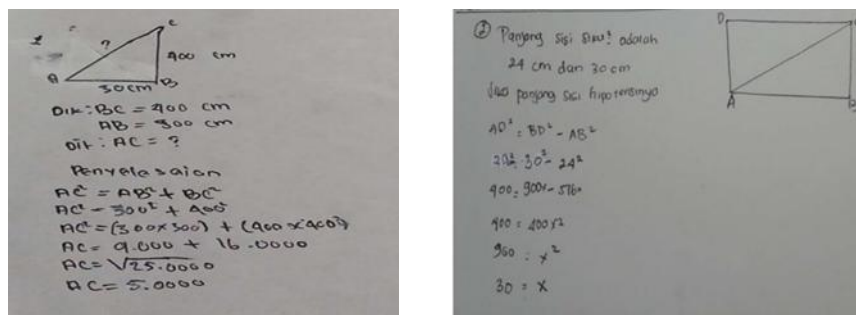 1
C
?
400 cm
A
30cm
B
Dik : BC = 400 cm
AB = 300 cm
Dit : AC = ?
Penyelesaian
AC² = AB² + BC²
AC² = 300² + 400²
AC² = (300x300) + (400x400)
AC = 9.000 + 16.0000
AC = √25.0000
AC = 5.0000
② Panjang sisi siku² adalah
24 cm dan 30 cm
panjang sisi hipotensinya
D
A
B
AD² = BD² - AB²
30² - 24²
400 = 400x²
960 = x²
30 = x